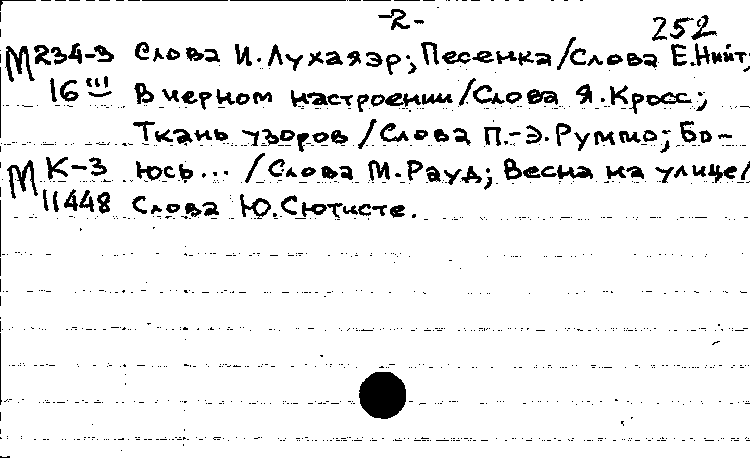 -2-
252
М 234-3 Слова И.Лухаяэр; Песенка/Слова Е.Нийт;
16 В черном настроении/Слова Я.Кросс;
Ткань узоров/Слова П.-Э.Руммо; Бо-
М К-3 юсь.../Слова М.Рауд; Весна на улице/
11448 Слова Ю.Сютисте.